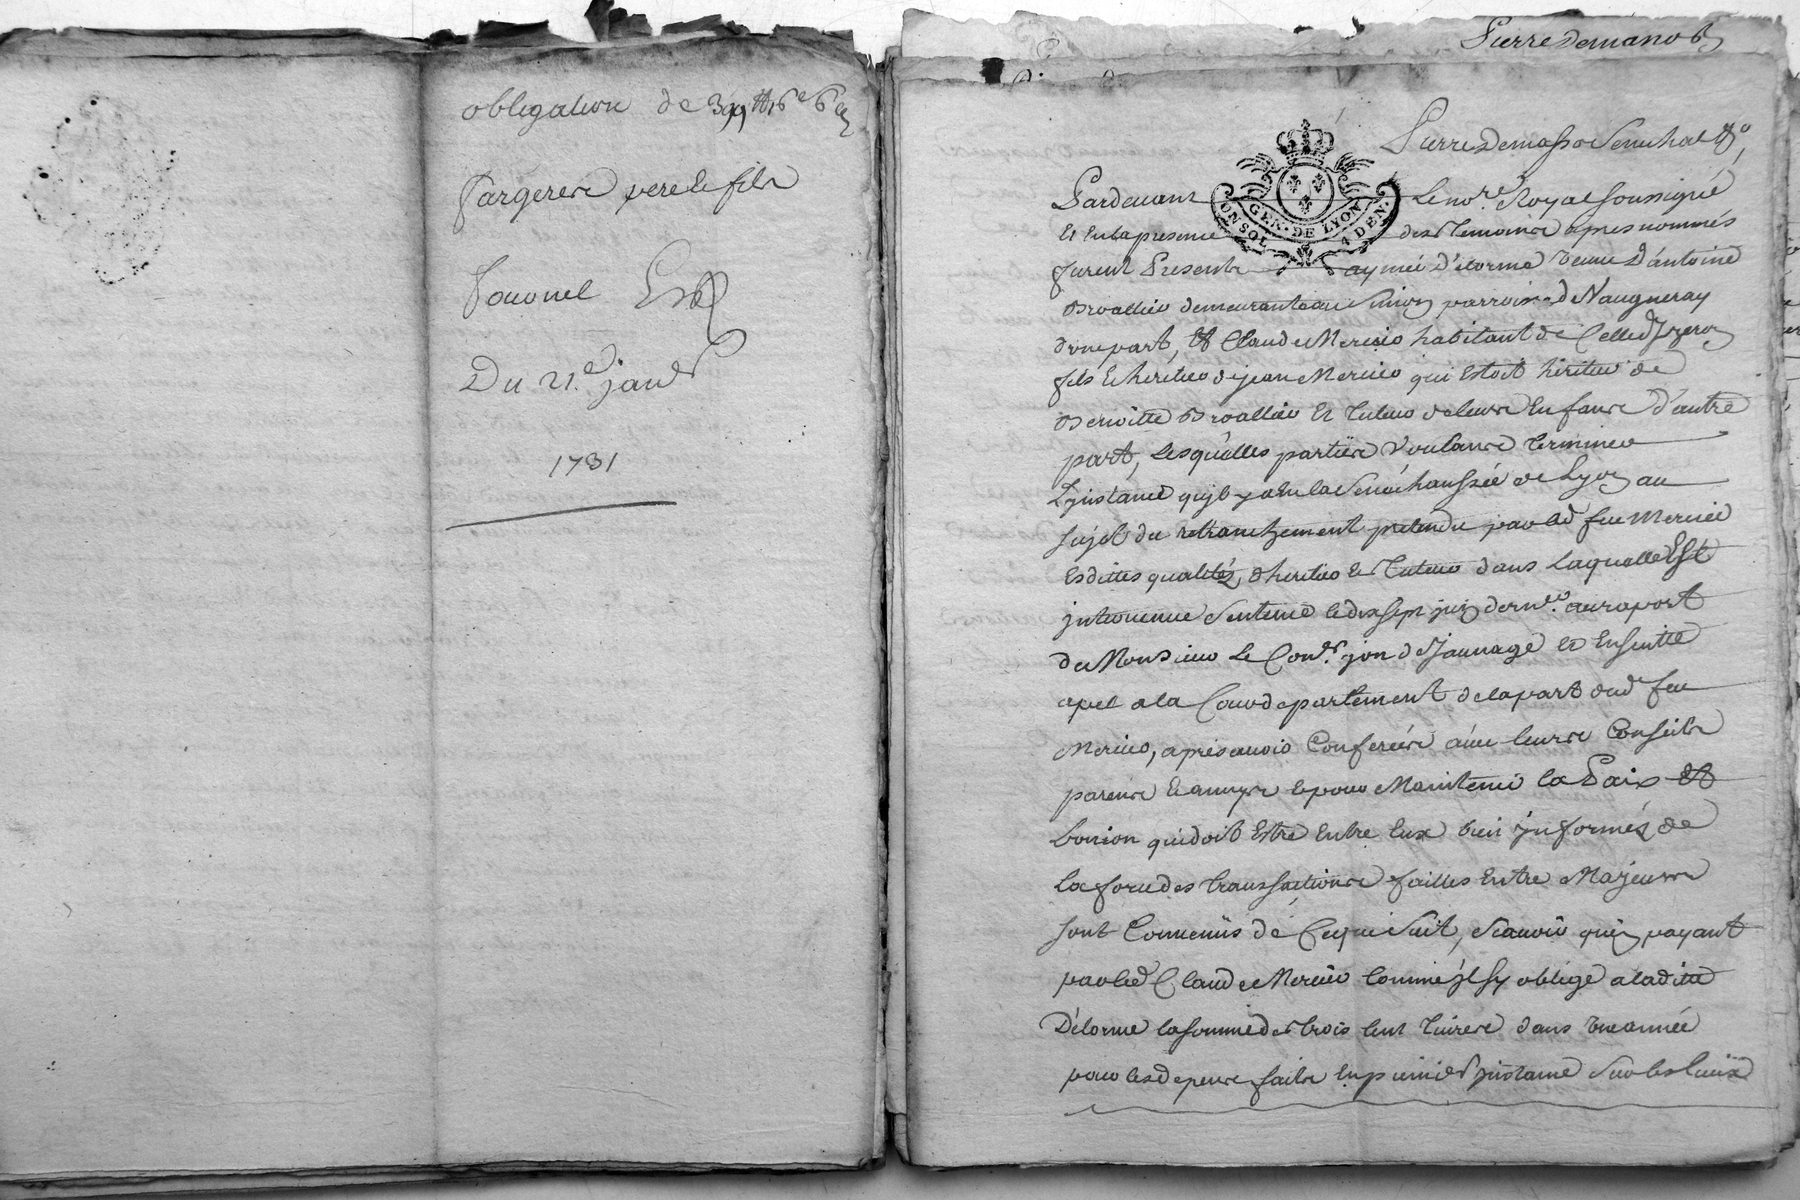 obligation de 399 ₶ 6ˢ 6ᵈ
fargere pere & fils
Du 21.e janer
1731
Pierre
Pierre
GEN. DE LYON
UN SOL 4 DEN.
Pardevant Le nore. Royal soussigné
Et en la presence des Temoins apres nommés
furent Presents aymeé Délorme veuve D'antoine
Broallier demeurante au parroisse de Vaugneray
d'une part, Et Claude Mercier habitant de Celle d'yzeron
fils & heritier de jean Mercier qui Estoit hèritier de
Benoitte Broallier Et Tuteur de leurs Enfans D'autre
part, Lesquëlles partiës Voulants Terminer
L'jnstance qu'jl y a En la Senéchaussée de Lyon au
sujet du retranchement pretendu par led feu Mercier
Esdittes qualitéz, d'heritier & Tuteur dans Laquelle Est
jntervenue Sentence le dix sept juin dernier. au raport
de Monsieur Le Coner. yon de Jaunage & Ensuitte
apel a la Cour de parlement de la part dud feu
Mercier, apres avoir Conferéés avec leurs Conseils
parens & amys & pour Maintenir la Paix Et
L'union qui doit Estre Entre Eux bien jnformés de
La force des transactions faittes Entre Majeurs
sont Convenüs de Ce qui Suit, Scavoir qu'en payant
par led Claude Mercier Comme jl sy oblige a laditte
Délorme la somme de trois Cent Livres dans une année
pour les depens faits En premiere jnstance Sur les lieux